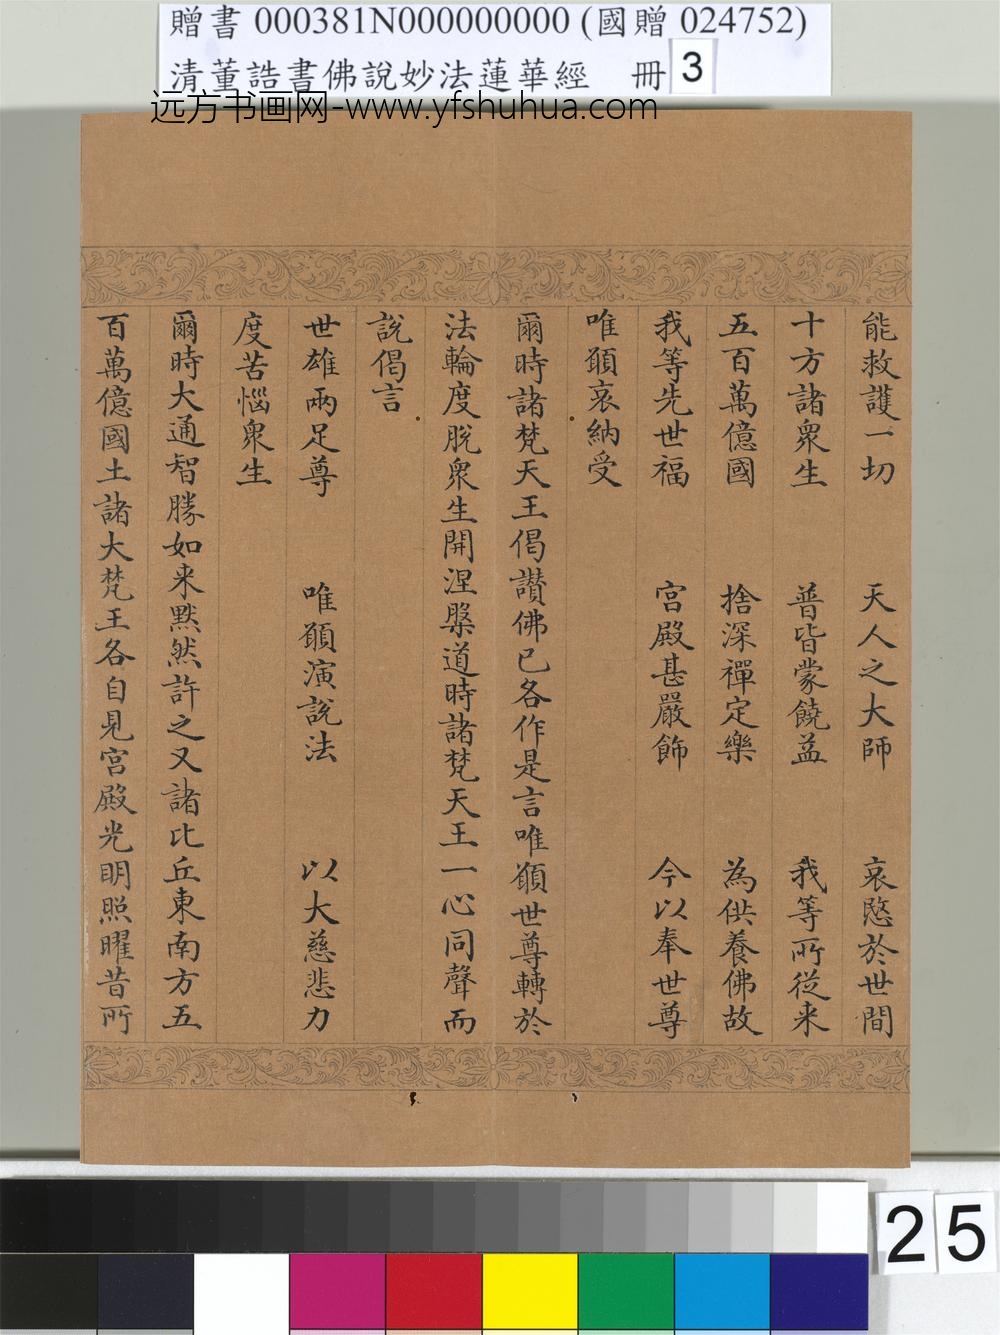 贈書 000381N000000000 (國贈 024752)
清董誥書佛說妙法蓮華經 冊 3
远方书画网-www.yfshuhua.com
能救護一切 天人之大師 哀愍於世間
十方諸衆生 普皆蒙饒益 我等所從来
五百萬億國 捨深禪定樂 為供養佛故
我等先世福 宮殿甚嚴飾 今以奉世尊
唯願哀納受
爾時諸梵天王偈讚佛已各作是言唯願世尊轉於
法輪度脫衆生開涅槃道時諸梵天王一心同聲而
說偈言
世雄兩足尊 唯願演說法 以大慈悲力
度苦惱衆生
爾時大通智勝如来默然許之又諸比丘東南方五
百萬億國土諸大梵王各自見宮殿光明照曜昔所
25